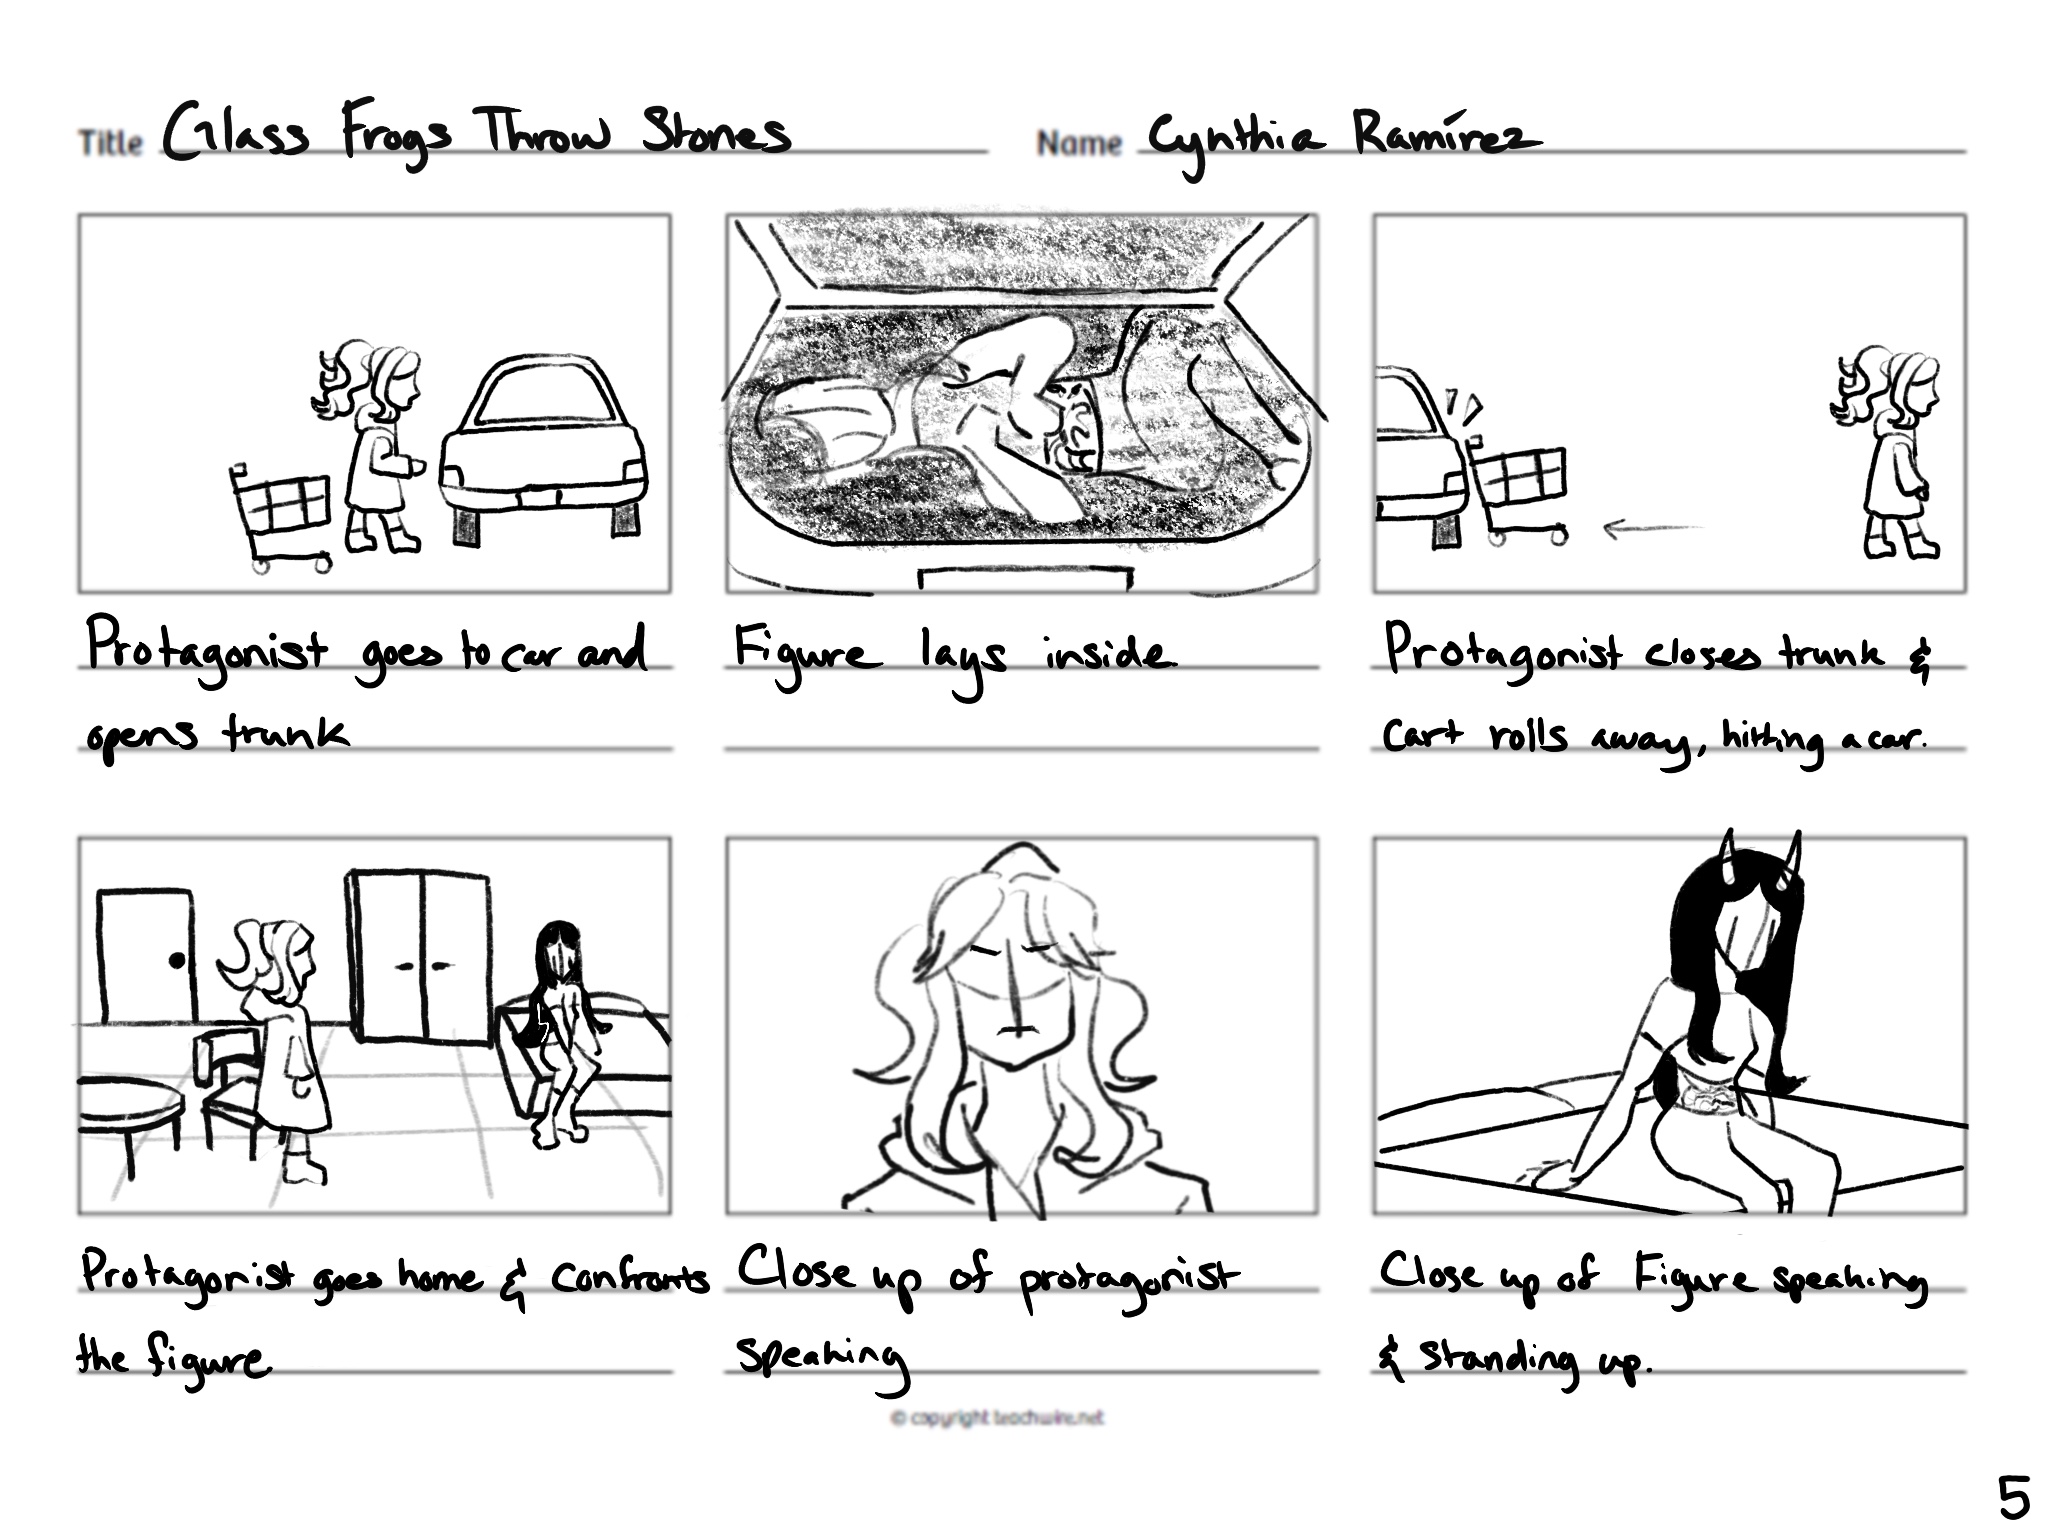 Title Glass Frogs Throw Stones
Name Cynthia Ramírez
Protagonist goes to car and
opens trunk
Figure lays inside.
Protagonist closes trunk &
cart rolls away, hitting a car.
Protagonist goes home & confronts
the figure
Close up of protagonist
speaking
Close up of Figure speaking
& standing up.
© copyright teachwire.net
5